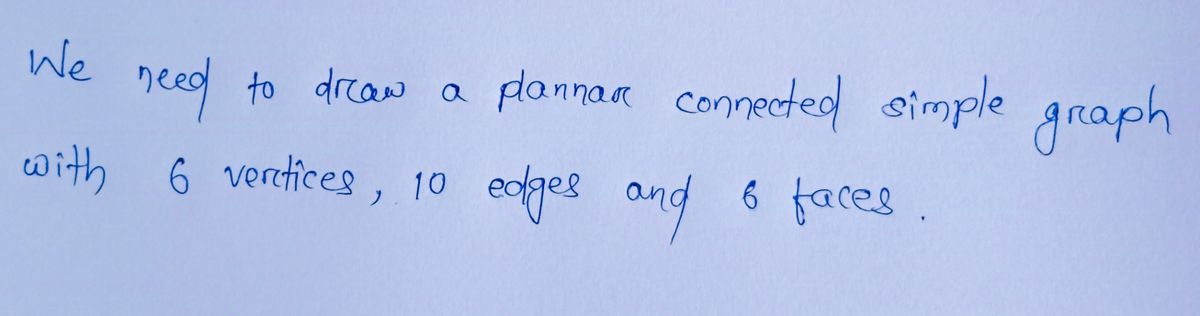 We need to draw a plannar connected simple graph
with 6 vertices, 10 edges and 6 faces.